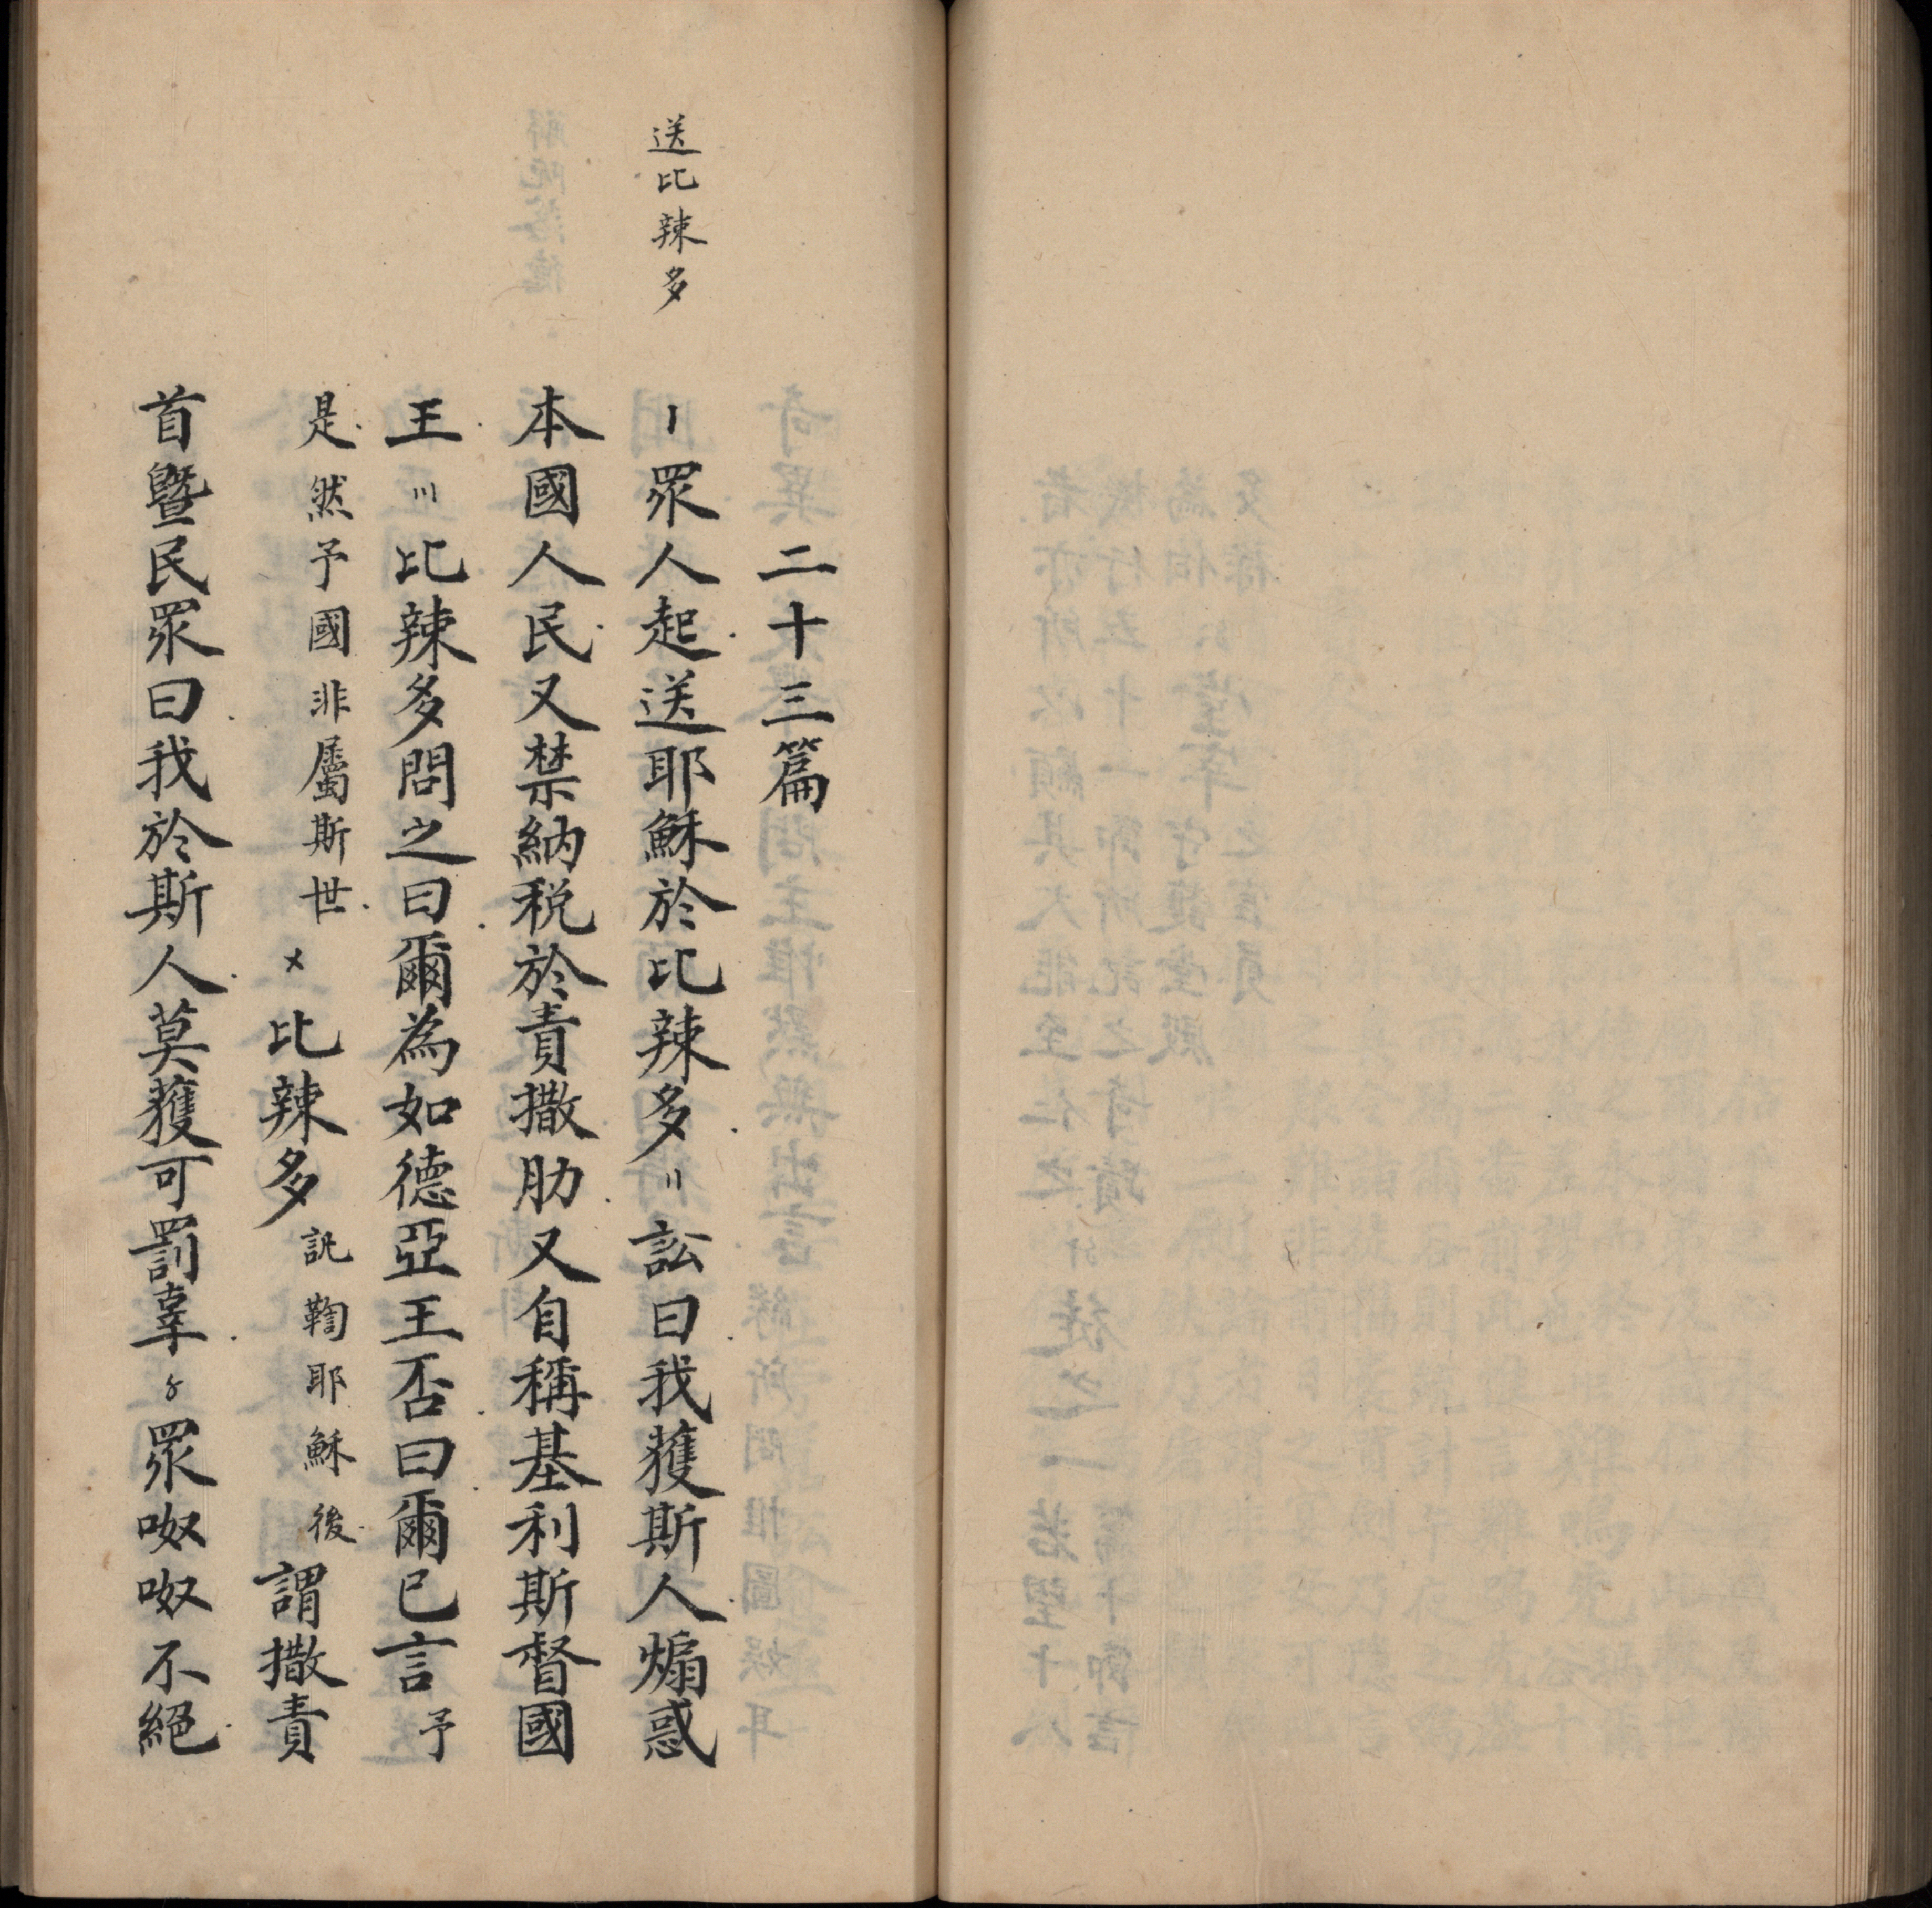 送比辣多
二十三篇
〡眾人起送耶穌於比辣多〢訟曰我獲斯人煽惑
本國人民又禁納税於責撒肋又自稱基利斯督國
王〣比辣多問之曰爾為如德亞王否曰爾已言予
是然予國非屬斯世〤比辣多訊鞫耶穌後謂撒責
首暨民眾曰我於斯人莫獲可罰辜〥眾呶呶不絕